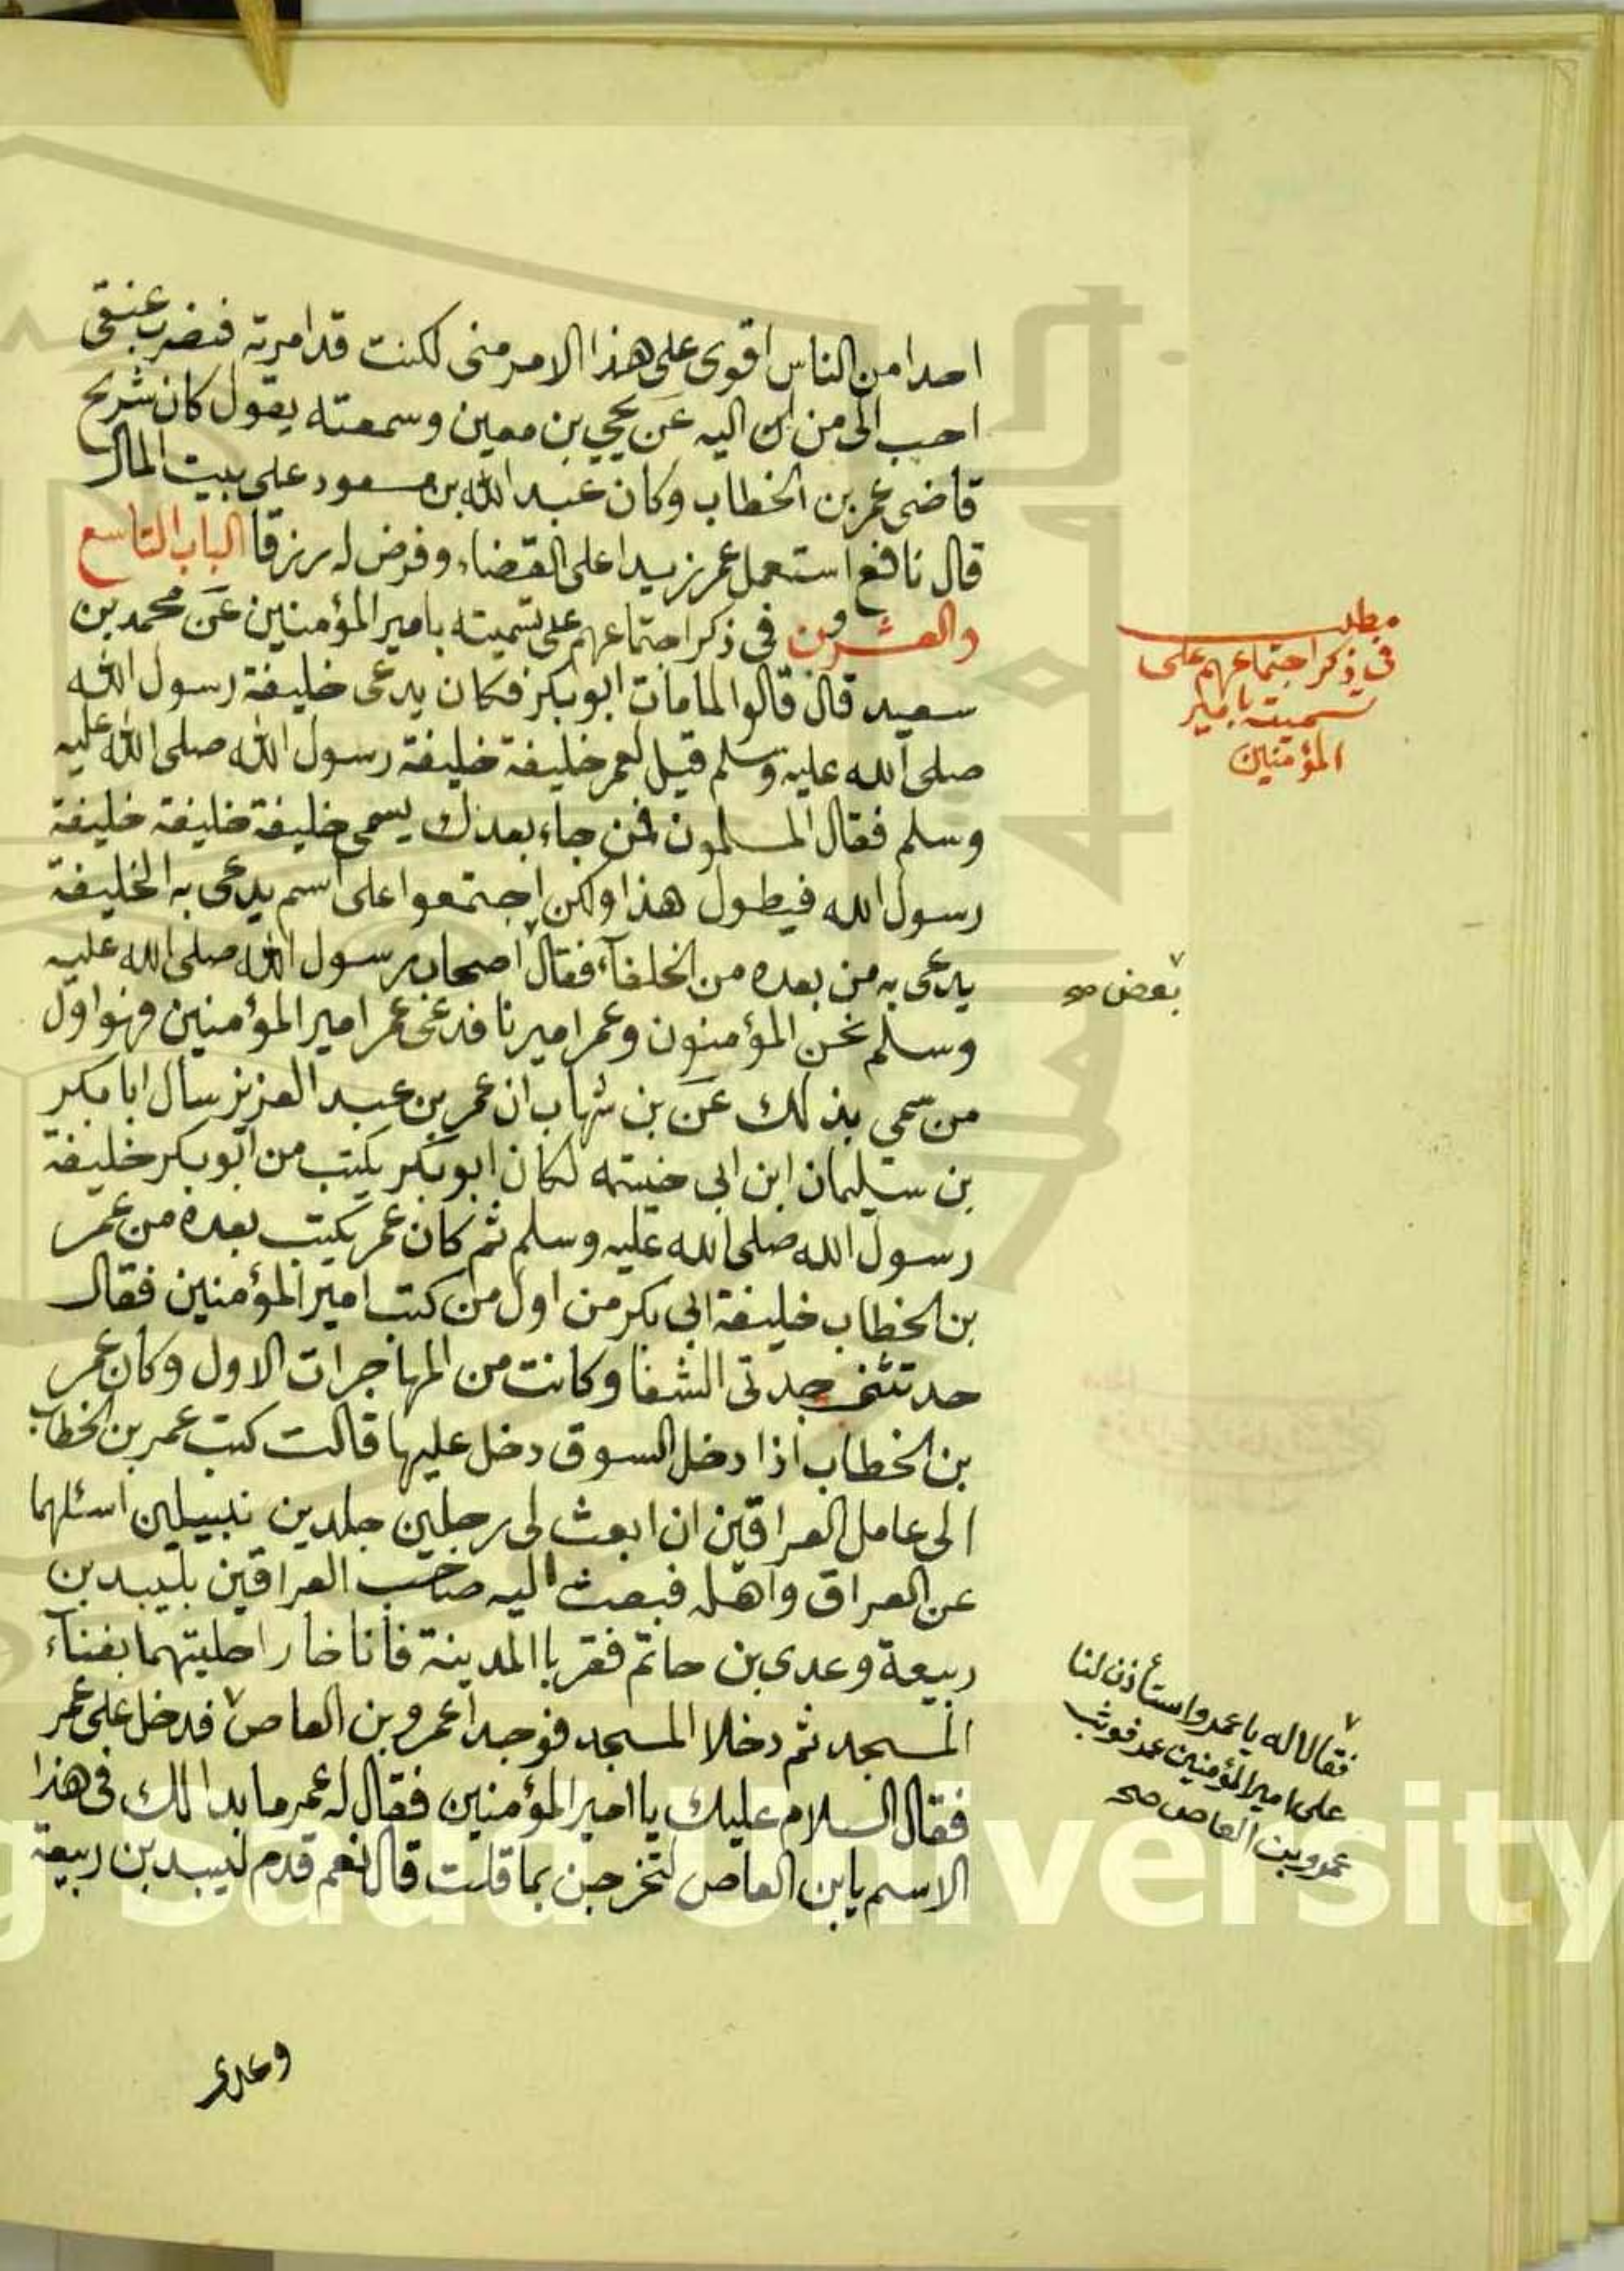 احدا من الناس اقوى على هذا الامر منى لكنت قد امرته فنضرب عنقى
احب الى من ان اليه عن يحيي بن معين وسمعته يقول كان شريح
قاضى عمر بن الخطاب وكان عبد الله بن مسعود على بيت المال
قال نافع استعمل عمر زيدا على القضاء وفرض له رزقا الباب التاسع
والعشرون في ذكر اجتماعهم على تسميته بامير المؤمنين عن محمد بن
سعيد قال قالوا لما مات ابو بكر فكان يدعى خليفة رسول الله
صلى الله عليه وسلم قيل لعمر خليفة خليفة رسول الله صلى الله عليه
وسلم فقال المسلمون فمن جاء بعدك يسمى خليفة خليفة خليفة
رسول الله فيطول هذا ولكن اجتمعوا على اسم يدعى به الخليفة
يدعى به من بعده من الخلفاء فقال اصحاب رسول الله صلى الله عليه
وسلم نحن المؤمنون وعمر اميرنا فدعى عمر امير المؤمنين فهو اول
من سمي بذلك عن بن شهاب ان عمر بن عبد العزيز سال ابا بكر
بن سليمان ابن ابي خيثمه لكان ابو بكر يكتب من ابو بكر خليفة
رسول الله صلى الله عليه وسلم ثم كان عمر يكتب بعده من عمر
بن الخطاب خليفة ابي بكر من اول من كتب امير المؤمنين فقال
حدثتنى جدتى الشفا وكانت من المهاجرات الاول وكان عمر
بن الخطاب اذا دخل السوق دخل عليها قالت كتب عمر بن الخطاب
الى عامل العراقين ان ابعث لى رجلين جلدين نبيلين اسئلهما
عن العراق واهله فبعث اليه صاحب العراقين بلبيد بن
ربيعة وعدى بن حاتم فقربا المدينة فاناخا راحلتيهما بفناء
المسجد ثم دخلا المسجد فوجدا عمرو بن العاص فدخل على عمر
فقال السلام عليك يا امير المؤمنين فقال له عمر ما بدا لك فى هذا
الاسم يابن العاص لتخرجن بما قلت قال نعم قدم لبيد بن ربيعة
وعدى
مطلب
في ذكر اجتماعهم على
تسميته بامير
المؤمنين
بعض صح
فقالا له يا عمرو استأذن لنا
على امير المؤمنين عمر فوثب
عمرو بن العاص صح
g Saud University